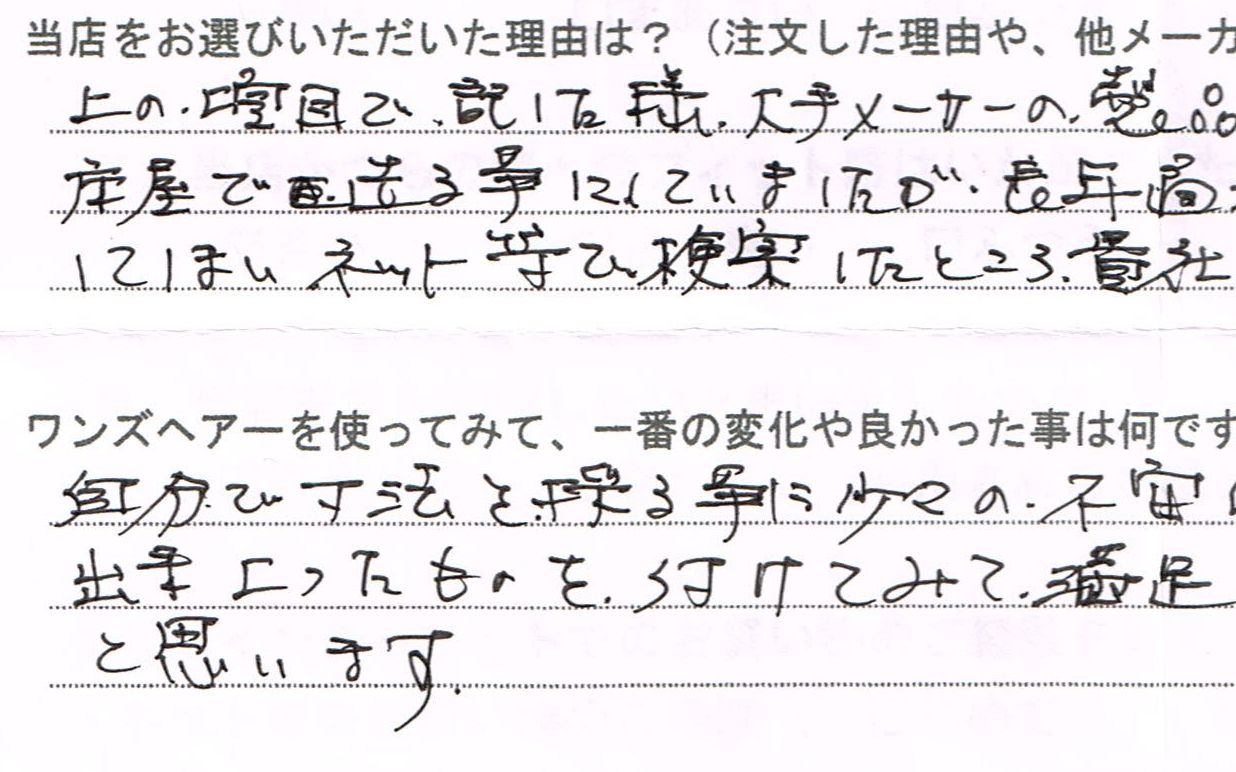 当店をお選びいただいた理由は？（注文した理由や、他メーカ
上の、項目で、記した様、大手メーカーの、製品
床屋で調達る事にしていましたが、長年過
してしまいネット等で、検索したところ、貴社
ワンズヘアーを使ってみて、一番の変化や良かった事は何です
自分で寸法を、採る事に少々の、不安
出来上ったものを、付けてみて、満足
と思います。